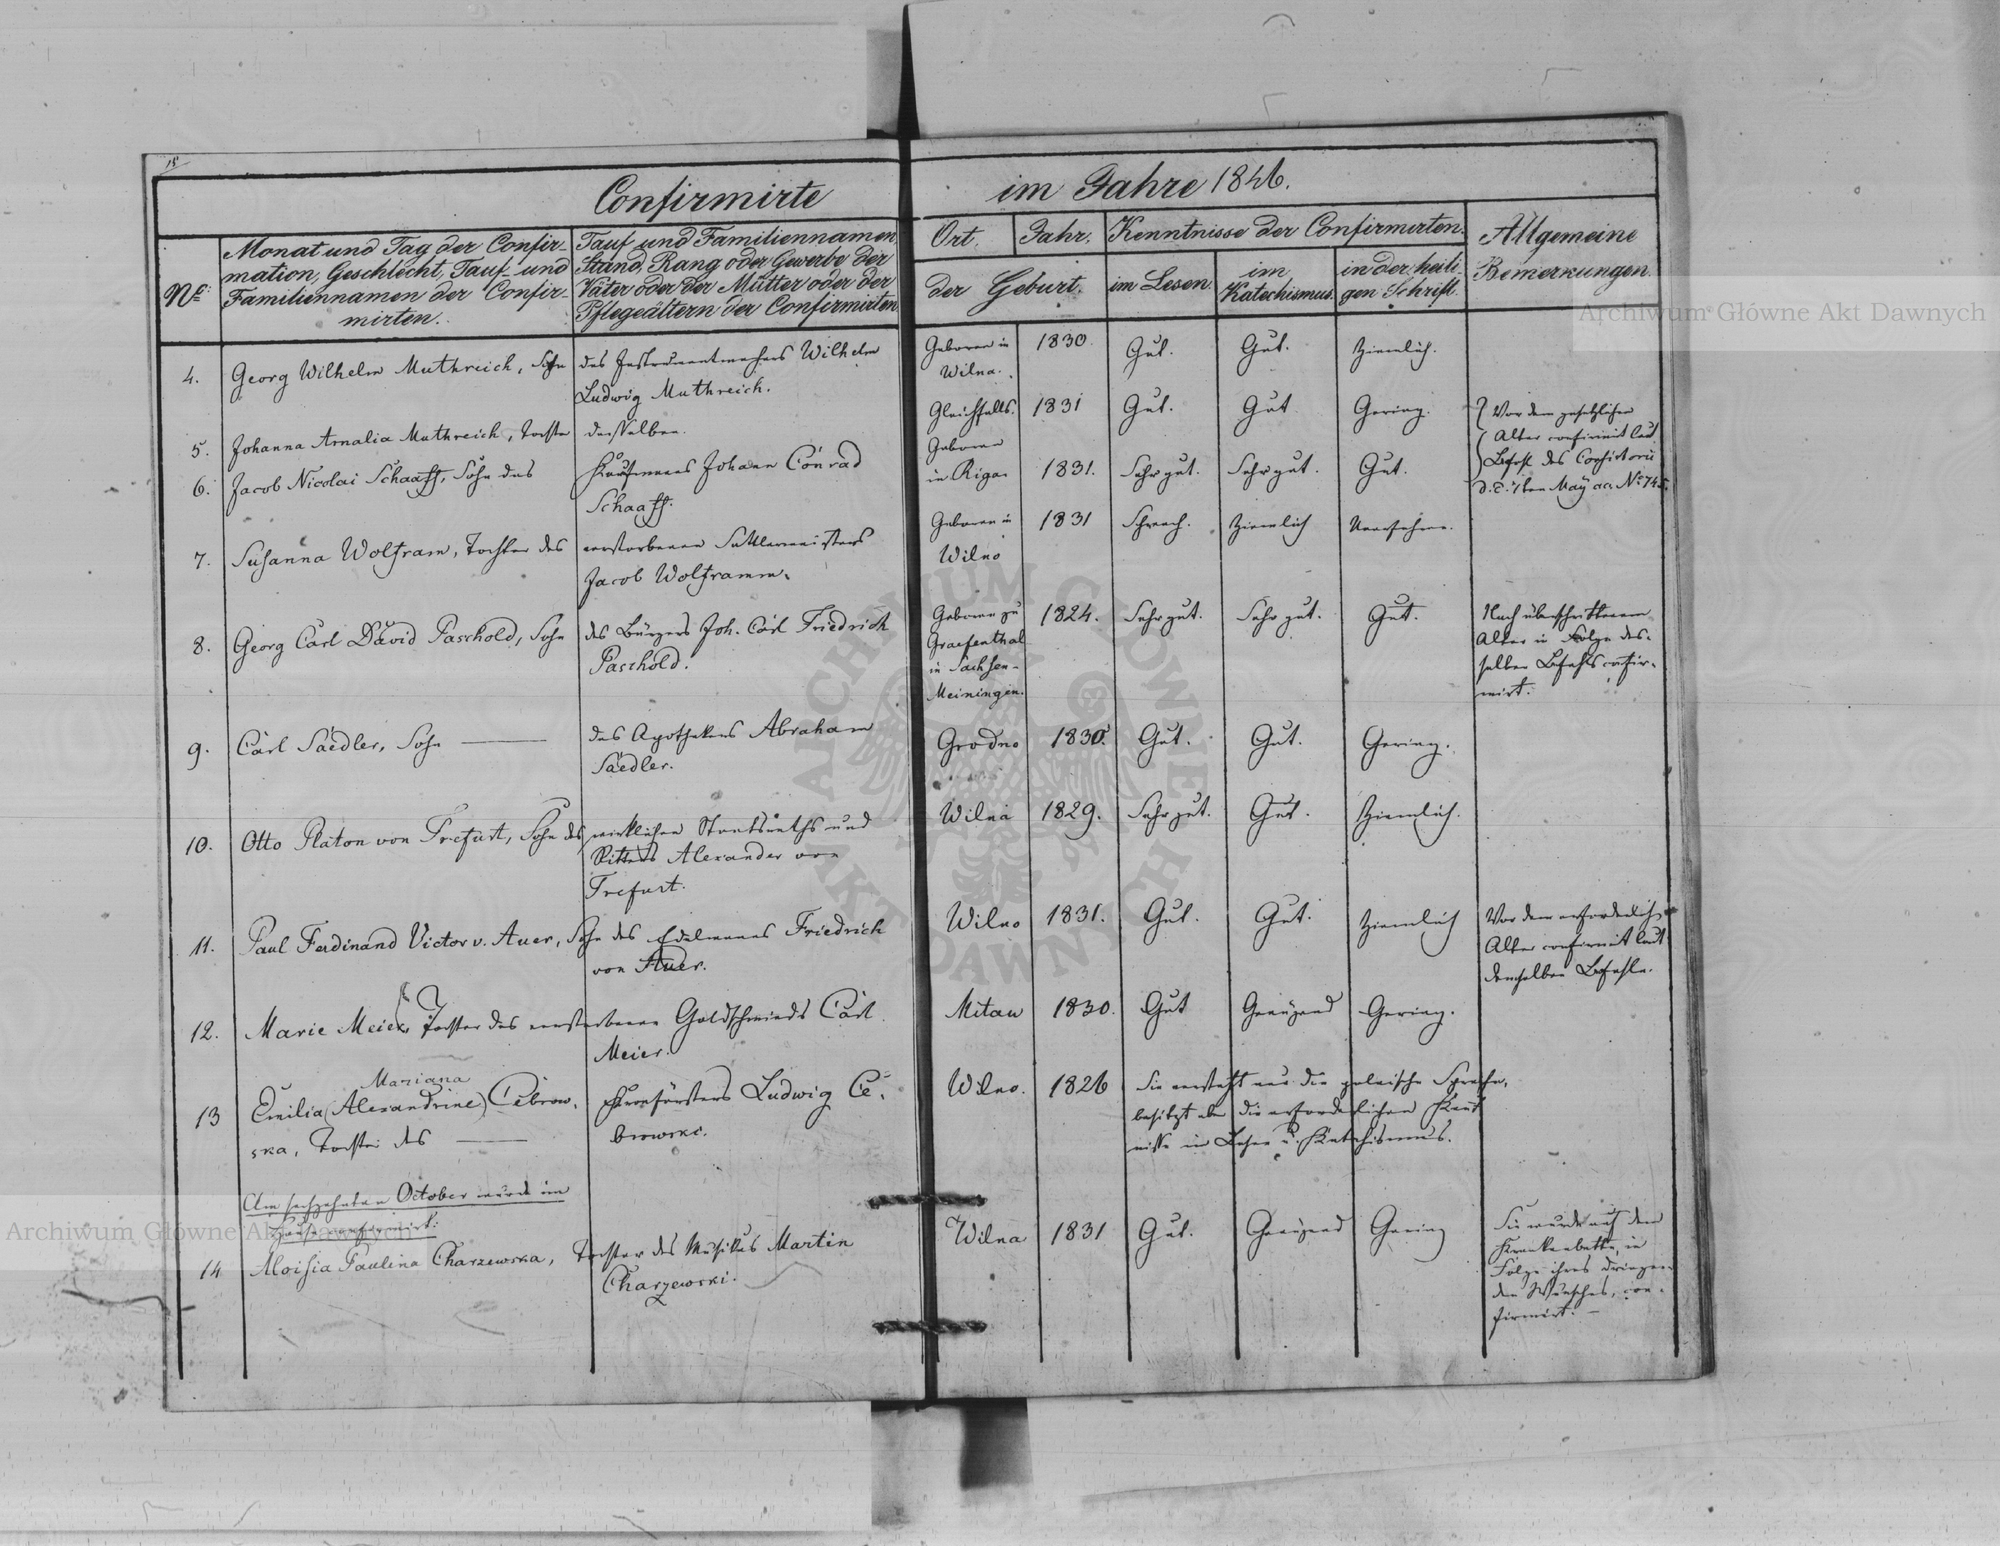 15
Confirmirte im Jahre 1846.
No.
Monat und Tag der Confir-
mation, Geschlecht, Tauf- und
Familiennamen der Confir-
mirten.
Tauf und Familiennamen,
Stand, Rang oder Gewerbe der
Väter oder der Mütter oder der
Pflegeältern der Confirmirten.
Ort. Jahr.
der Geburt.
Kenntnisse der Confirmirten.
im Lesen.
im
Katechismus.
in der heili-
gen Schrift.
Allgemeine
Bemerkungen.
4. Georg Wilhelm Muthreich, Sohn
des Instrumentmachers Wilhelm
Ludwig Muthreich.
Geboren in
Wilna.
1830. Gut. Gut. Ziemlich.
5. Johanna Amalia Muthreich, Tochter
desselben.
Gleichfalls. 1831 Gut. Gut Gering.
6. Jacob Nicolai Schaaff, Sohn des
Kaufmanns Johann Conrad
Schaaff.
Geboren
in Riga.
1831. Sehr gut. Sehr gut. Gut.
Vor dem gesetzlichen
Alter confirmirt laut
Befehl des Consistorii
d. d. 7ten May a.c. No 745.
7. Susanna Wolfram, Tochter des
verstorbenen Sattlermeisters
Jacob Wolframm.
Geboren in
Wilno
1831 Schwach. Ziemlich
8. Georg Carl David Paschold, Sohn
des Bürgers Joh. Carl Friedrich
Paschold.
Geboren zu
Graefenthal
in Sachsen-
Meiningen.
1824. Sehr gut. Sehr gut. Gut.
Nach überschrittenem
Alter in Folge des-
selben Befehls confir-
mirt.
9. Carl Saedler, Sohn
des Apothekers Abraham
Saedler.
Grodno 1830. Gut. Gut. Gering.
10. Otto Platon von Trefurt, Sohn des
wirklichen Staatsraths und
Ritters Alexander von
Trefurt.
Wilna 1829. Sehr gut. Gut. Ziemlich.
11. Paul Ferdinand Victor v. Auer, Sohn des Edelmanns Friedrich
von Auer.
Wilno 1831. Gut. Gut. Ziemlich
Vor dem erforderlichen
Alter confirmirt laut
demselben Befehle.
12. Marie Meier, Tochter des verstorbenen Goldschmieds Carl
Meier.
Mitau 1830. Gut Genügend Gering.
Mariana
13 Emilia (Alexandrine) Cebrow-
ska, Tochter des
Kronförsters Ludwig Ce-
browski.
Wilno. 1826
Sie versteht nur die polnische Sprache,
besitzt aber die erforderlichen Kennt
nisse im Lesen u. Katechismus.
Am sechzehnten October wurde im
Hause confirmirt:
14 Aloisia Paulina Charzewska, Tochter des Musikus Martin
Charzewski.
Wilna 1831 Gut. Genügend Gering
Sie wurde auf dem
Krankenbette, in
Folge ihres dringen-
den Wunsches, con-
firmirt.
Archiwum Główne Akt Dawnych
Archiwum Główne Akt Dawnych
ARCHIWUM GŁÓWNE AKT DAWNYCH